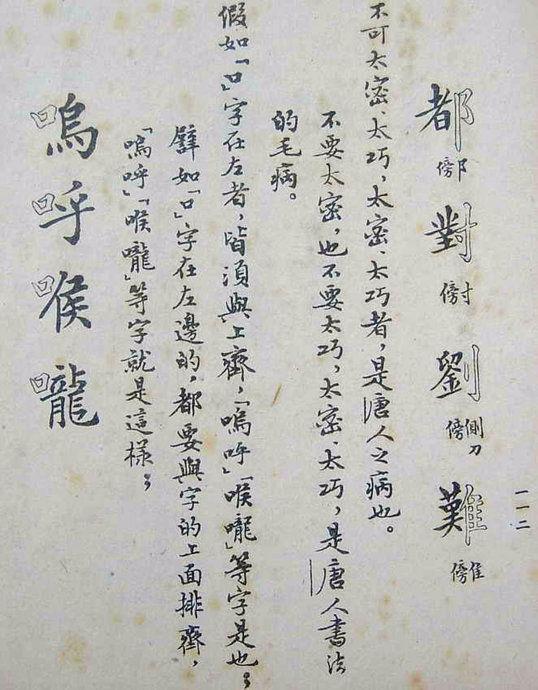 一一二
都 對 劉 難
阝傍 寸傍 側刀傍 隹傍
不可太密、太巧，太密、太巧者，是唐人之病也。
不要太密，也不要太巧，太密、太巧，是唐人書法
的毛病。
假如「口」字在左者，皆須與上齊，「嗚呼」「喉嚨」等字是也；
譬如「口」字在左邊的，都要與字的上面排齊，
「嗚呼」「喉嚨」等字就是這樣；
嗚呼喉嚨